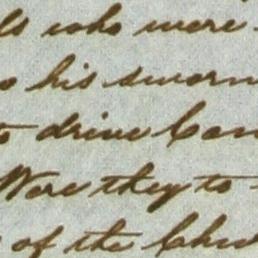 who were
his sworn
to drive Can
Were they to
of the Chu